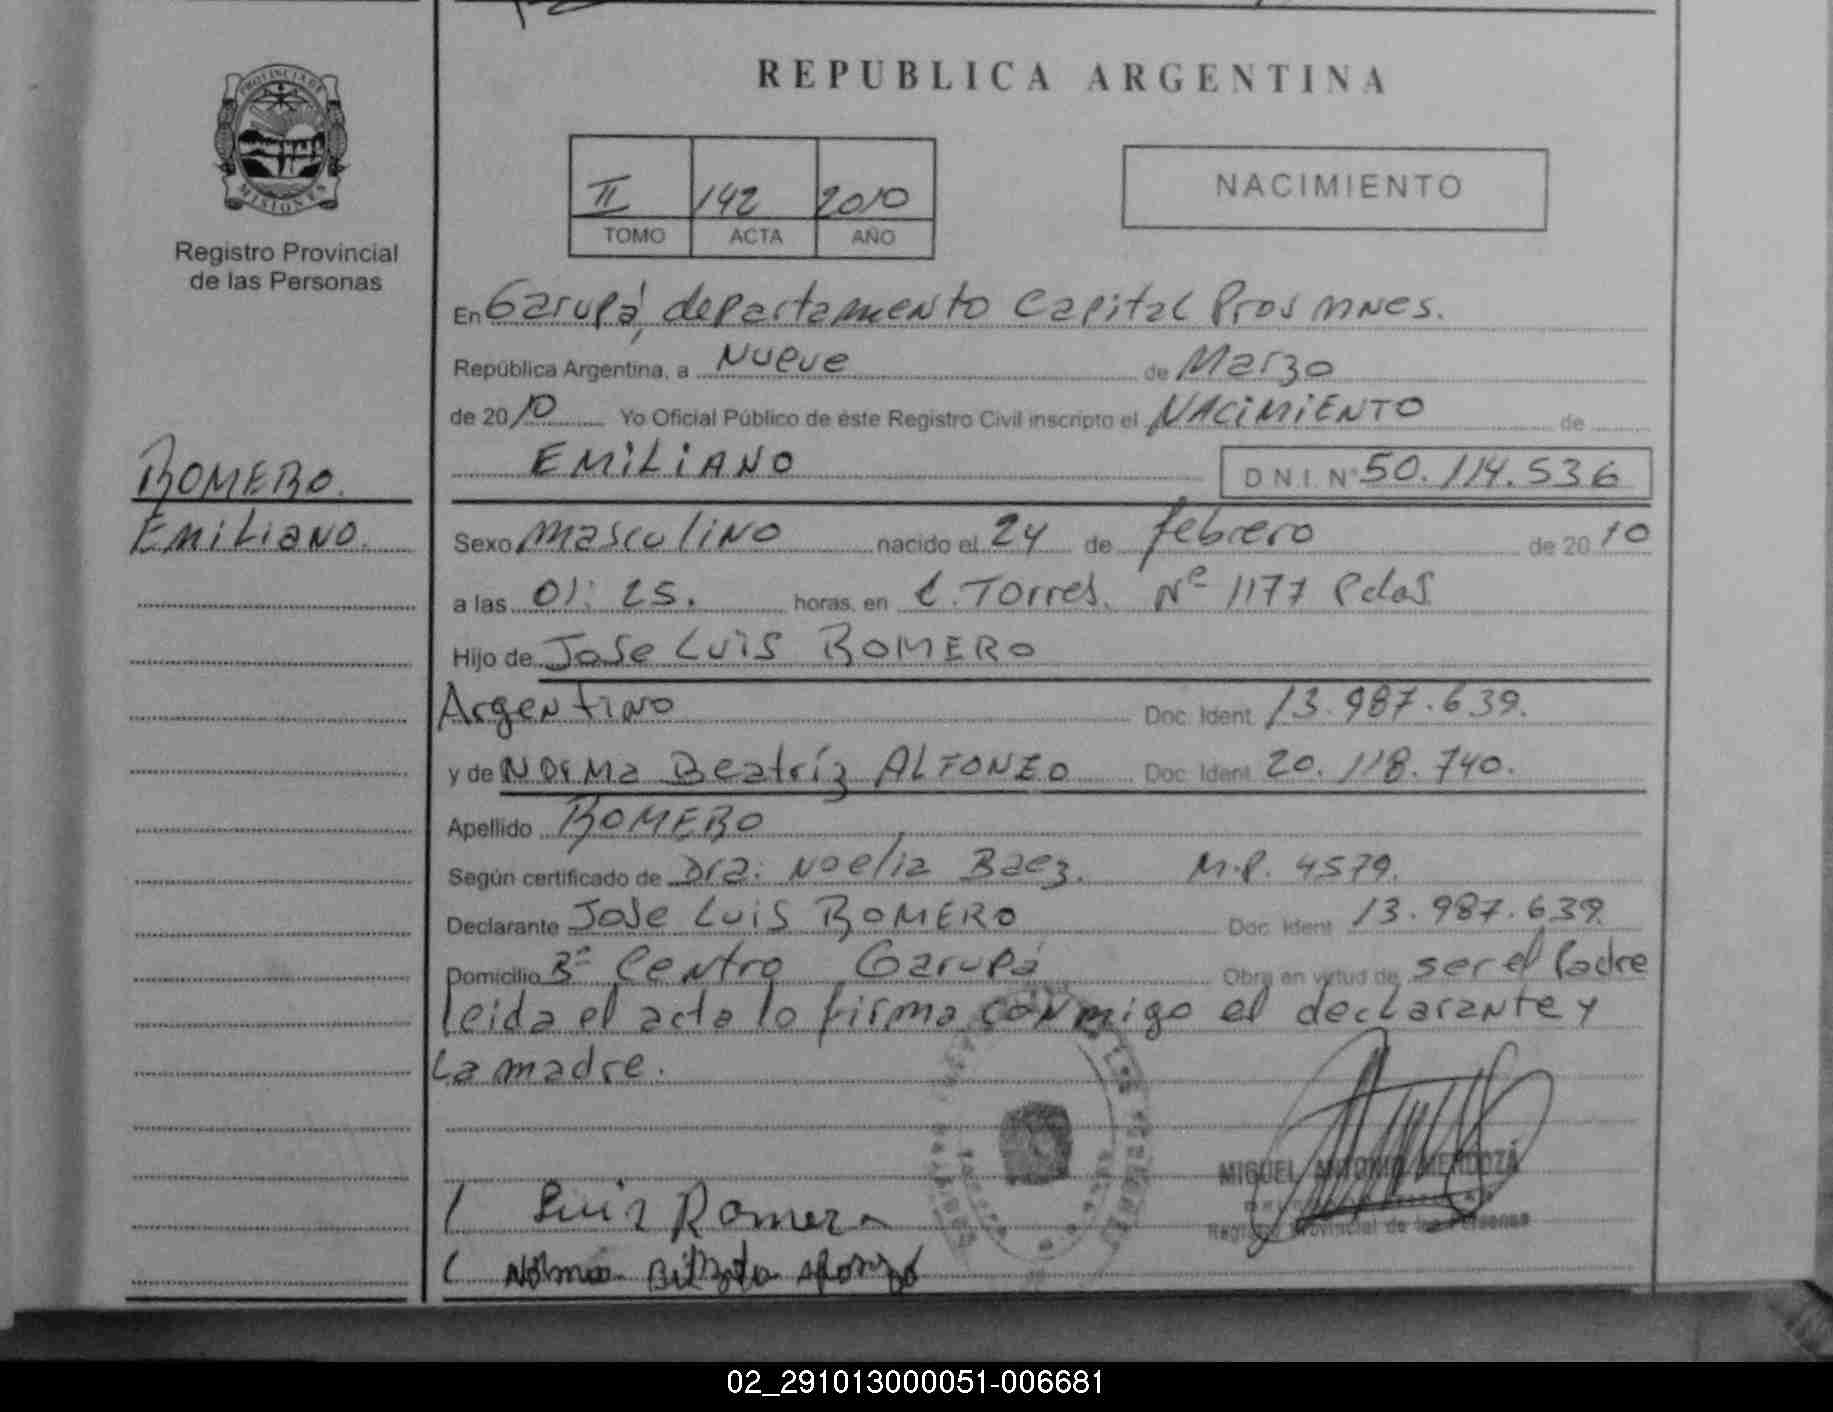 REPUBLICA ARGENTINA
PROVINCIA DE
MISIONES
Registro Provincial
de las Personas
II 142 2010
TOMO ACTA AÑO
NACIMIENTO
En Garupá, departamento Capital Prov MNes.
República Argentina, a Nueve de Marzo
de 2010 Yo Oficial Público de éste Registro Civil inscripto el NACIMIENTO de
EMILIANO D N.I. N° 50.114.536
ROMERO.
EMILIANO.
Sexo masculino nacido el 24 de febrero de 2010
a las 01:25. horas, en C. Torres. Nº 1177 Pdas
Hijo de Jose Luis ROMERO
Argentino Doc. Ident. 13.987.639.
y de NORMA Beatríz ALFONZO Doc. Ident. 20.118.740.
Apellido ROMERO
Según certificado de Dra. Noelia Baez. M.P. 4579.
Declarante Jose Luis ROMERO Doc. Ident. 13.987.639
Domicilio Bº Centro Garupá Obra en virtud de ser el Padre
leida el acta lo firma conmigo el declarante y
La madre.
MIGUEL ANTONIO MENDOZA
Registro Provincial de las Personas
Luis Romero
02_291013000051-006681